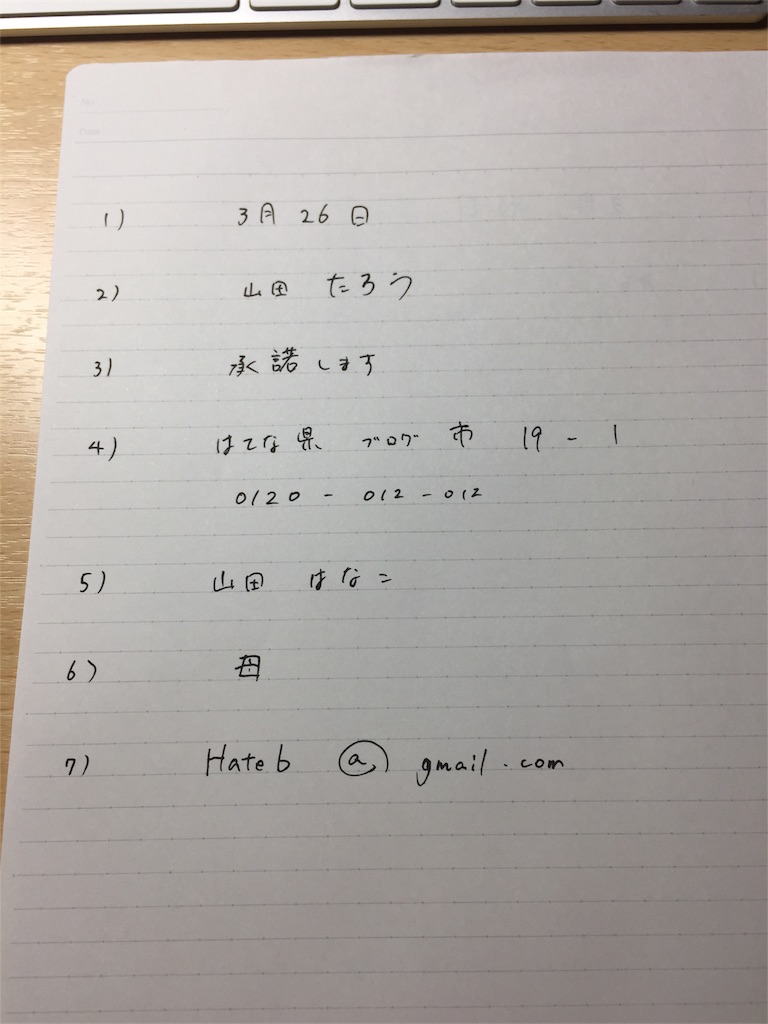 No.
Date
1) 3月 26 日
2) 山田 たろう
3) 承諾します
4) はてな県 ブログ 市 19 - 1
0120 - 012 - 012
5) 山田 はなこ
6) 母
7) Hateb @ gmail.com